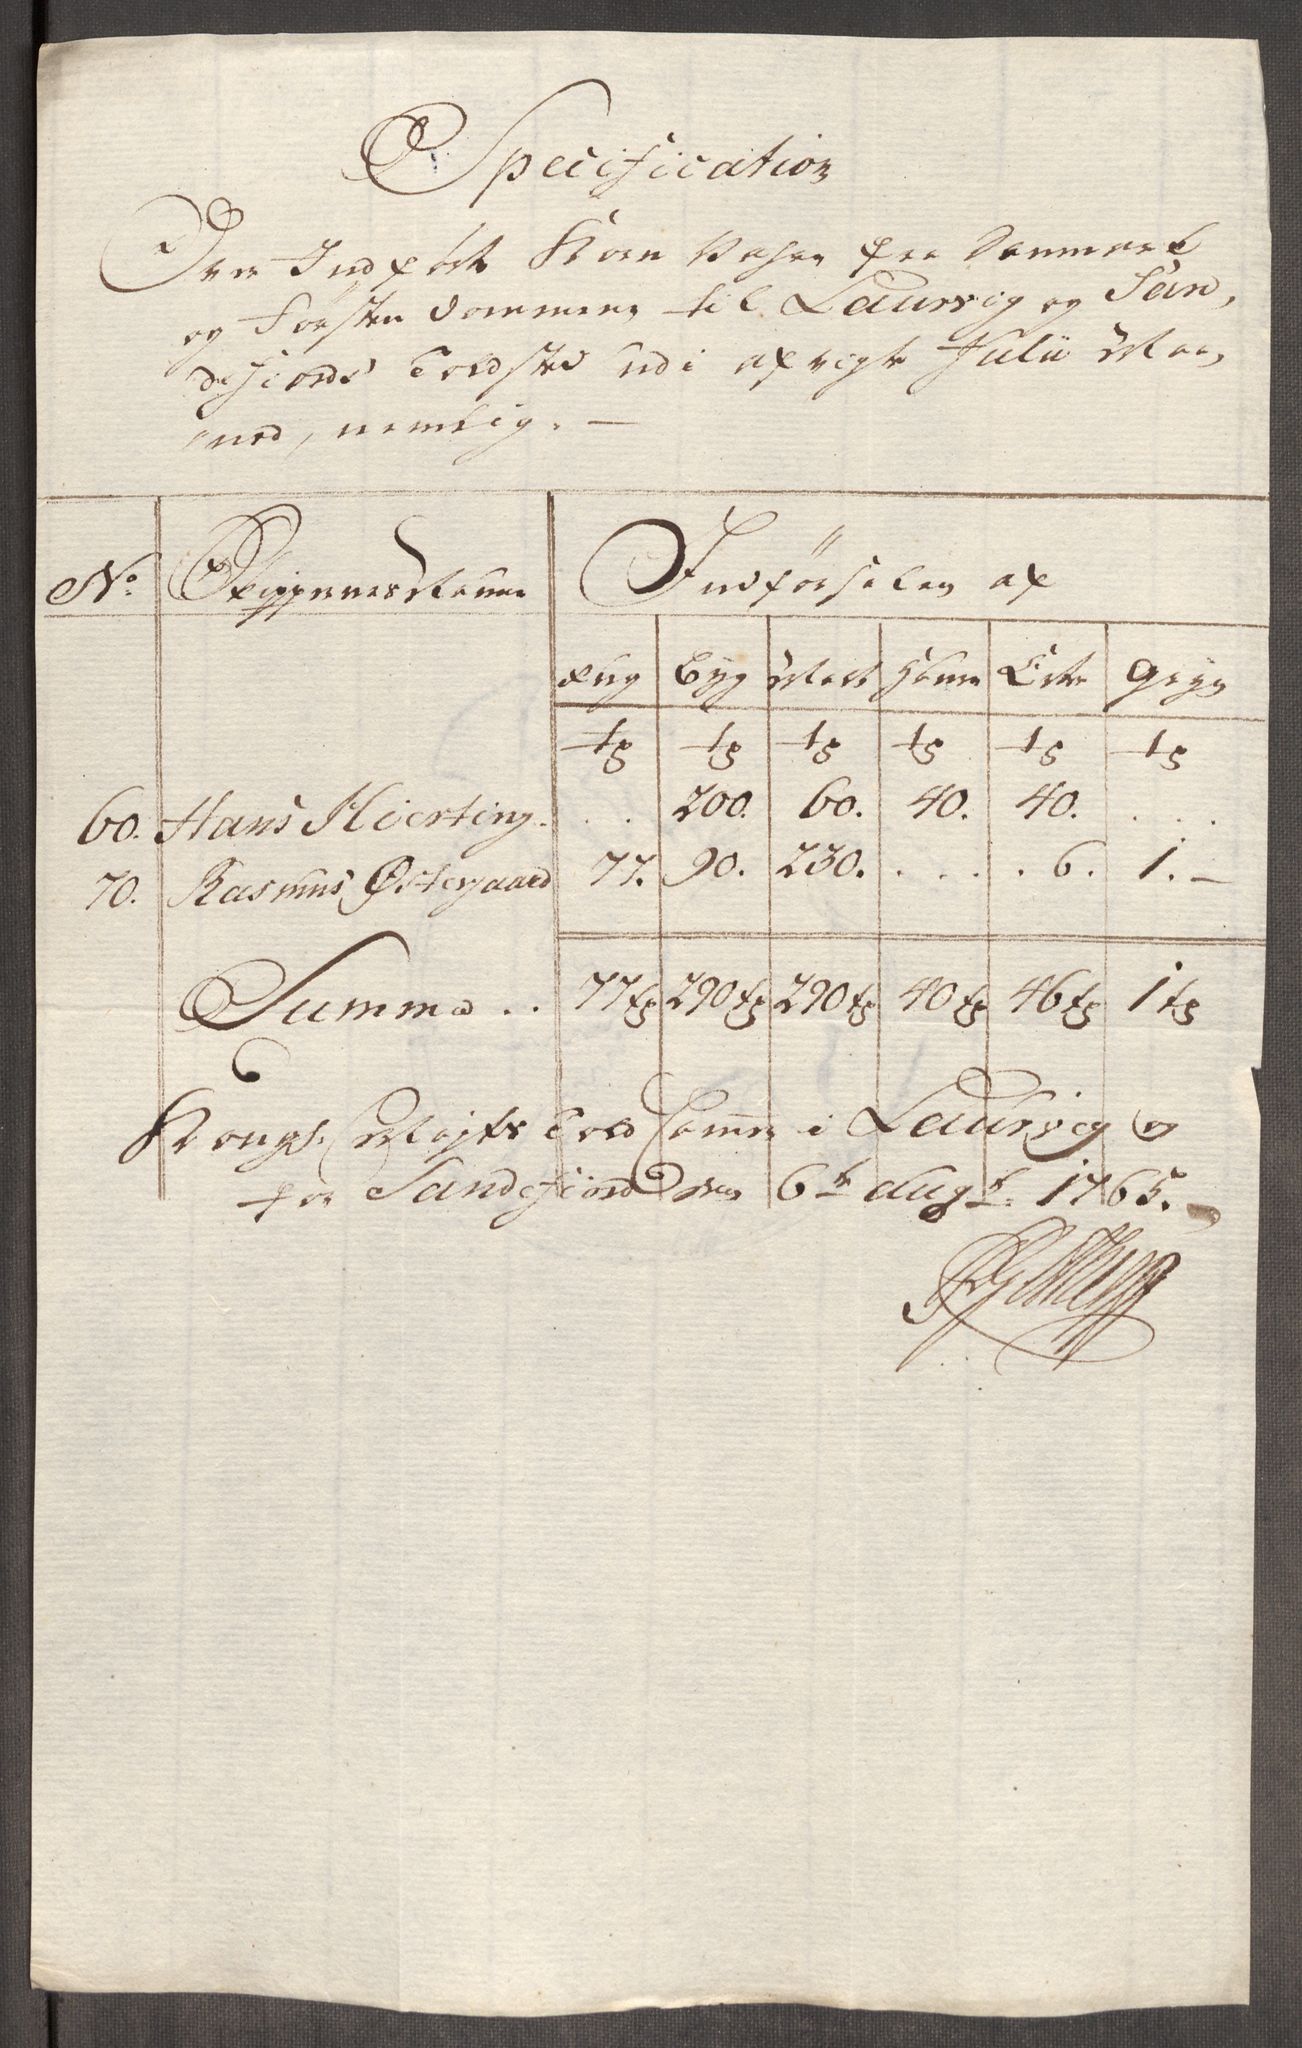 Specification
Over Indført Korn Vahre fra Danmark
og Førstendømmene til Laurvig og San,
defiords Toldsted udi afvigte Julii Maa,
ned, nemlig. —
No. Skippernes Nafne Indførselen af
Rug Byg Malt Hafre Erter Gryn
tr tr tr tr tr tr
60. Hans Hierting. . . 200. 60. 40. 40. . . .
70. Rasmus Østergaard 77. 90. 230. . . . . 6. 1. —
Summa . . 77 tr 290 tr 290 tr 40 tr 46 tr 1 tr
Kongl. Mayts Told Camer i Laurvig og
for Sandefiord den 6te Augt. 1765.